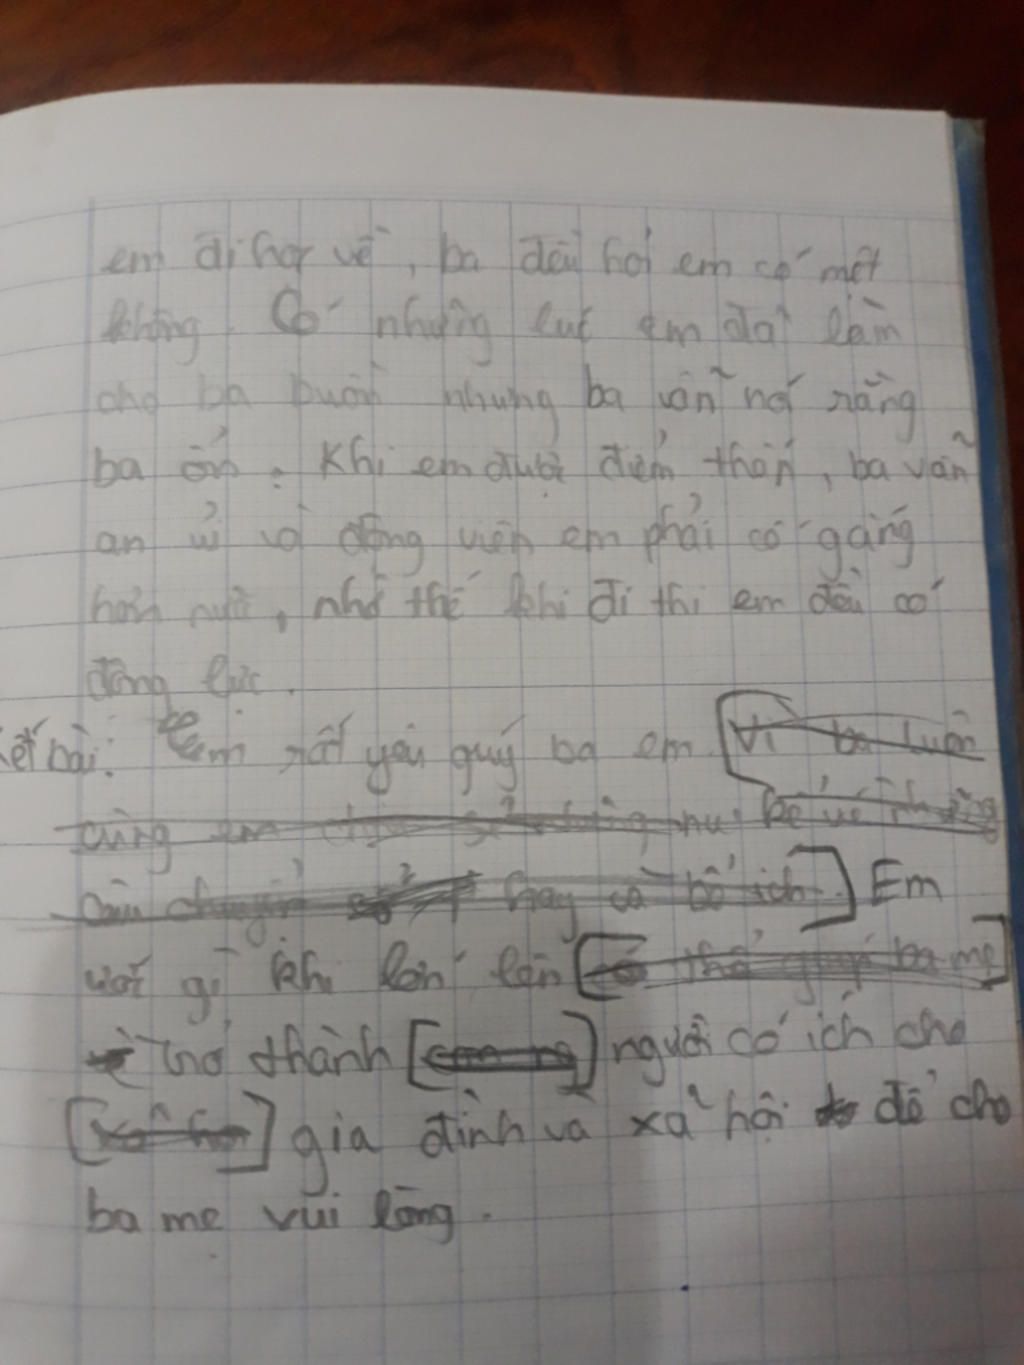 em đi học về, ba đều hỏi em có mệt
không. Có những lúc em đã làm
cho ba buồn nhưng ba vẫn nói rằng
ba ổn. Khi em được điểm thấp, ba vẫn
an ủi và động viên em phải cố gắng
hơn nữa, nhờ thế khi đi thi em đều có
động lực.
Kết bài: em rất yêu quý ba em. Vì ba luôn
cùng em kể về những
câu chuyện hay và bổ ích Em
ước gì khi lớn lên có thể giúp ba mẹ
trở thành người có ích cho
gia đình và xã hội để cho
ba mẹ vui lòng.